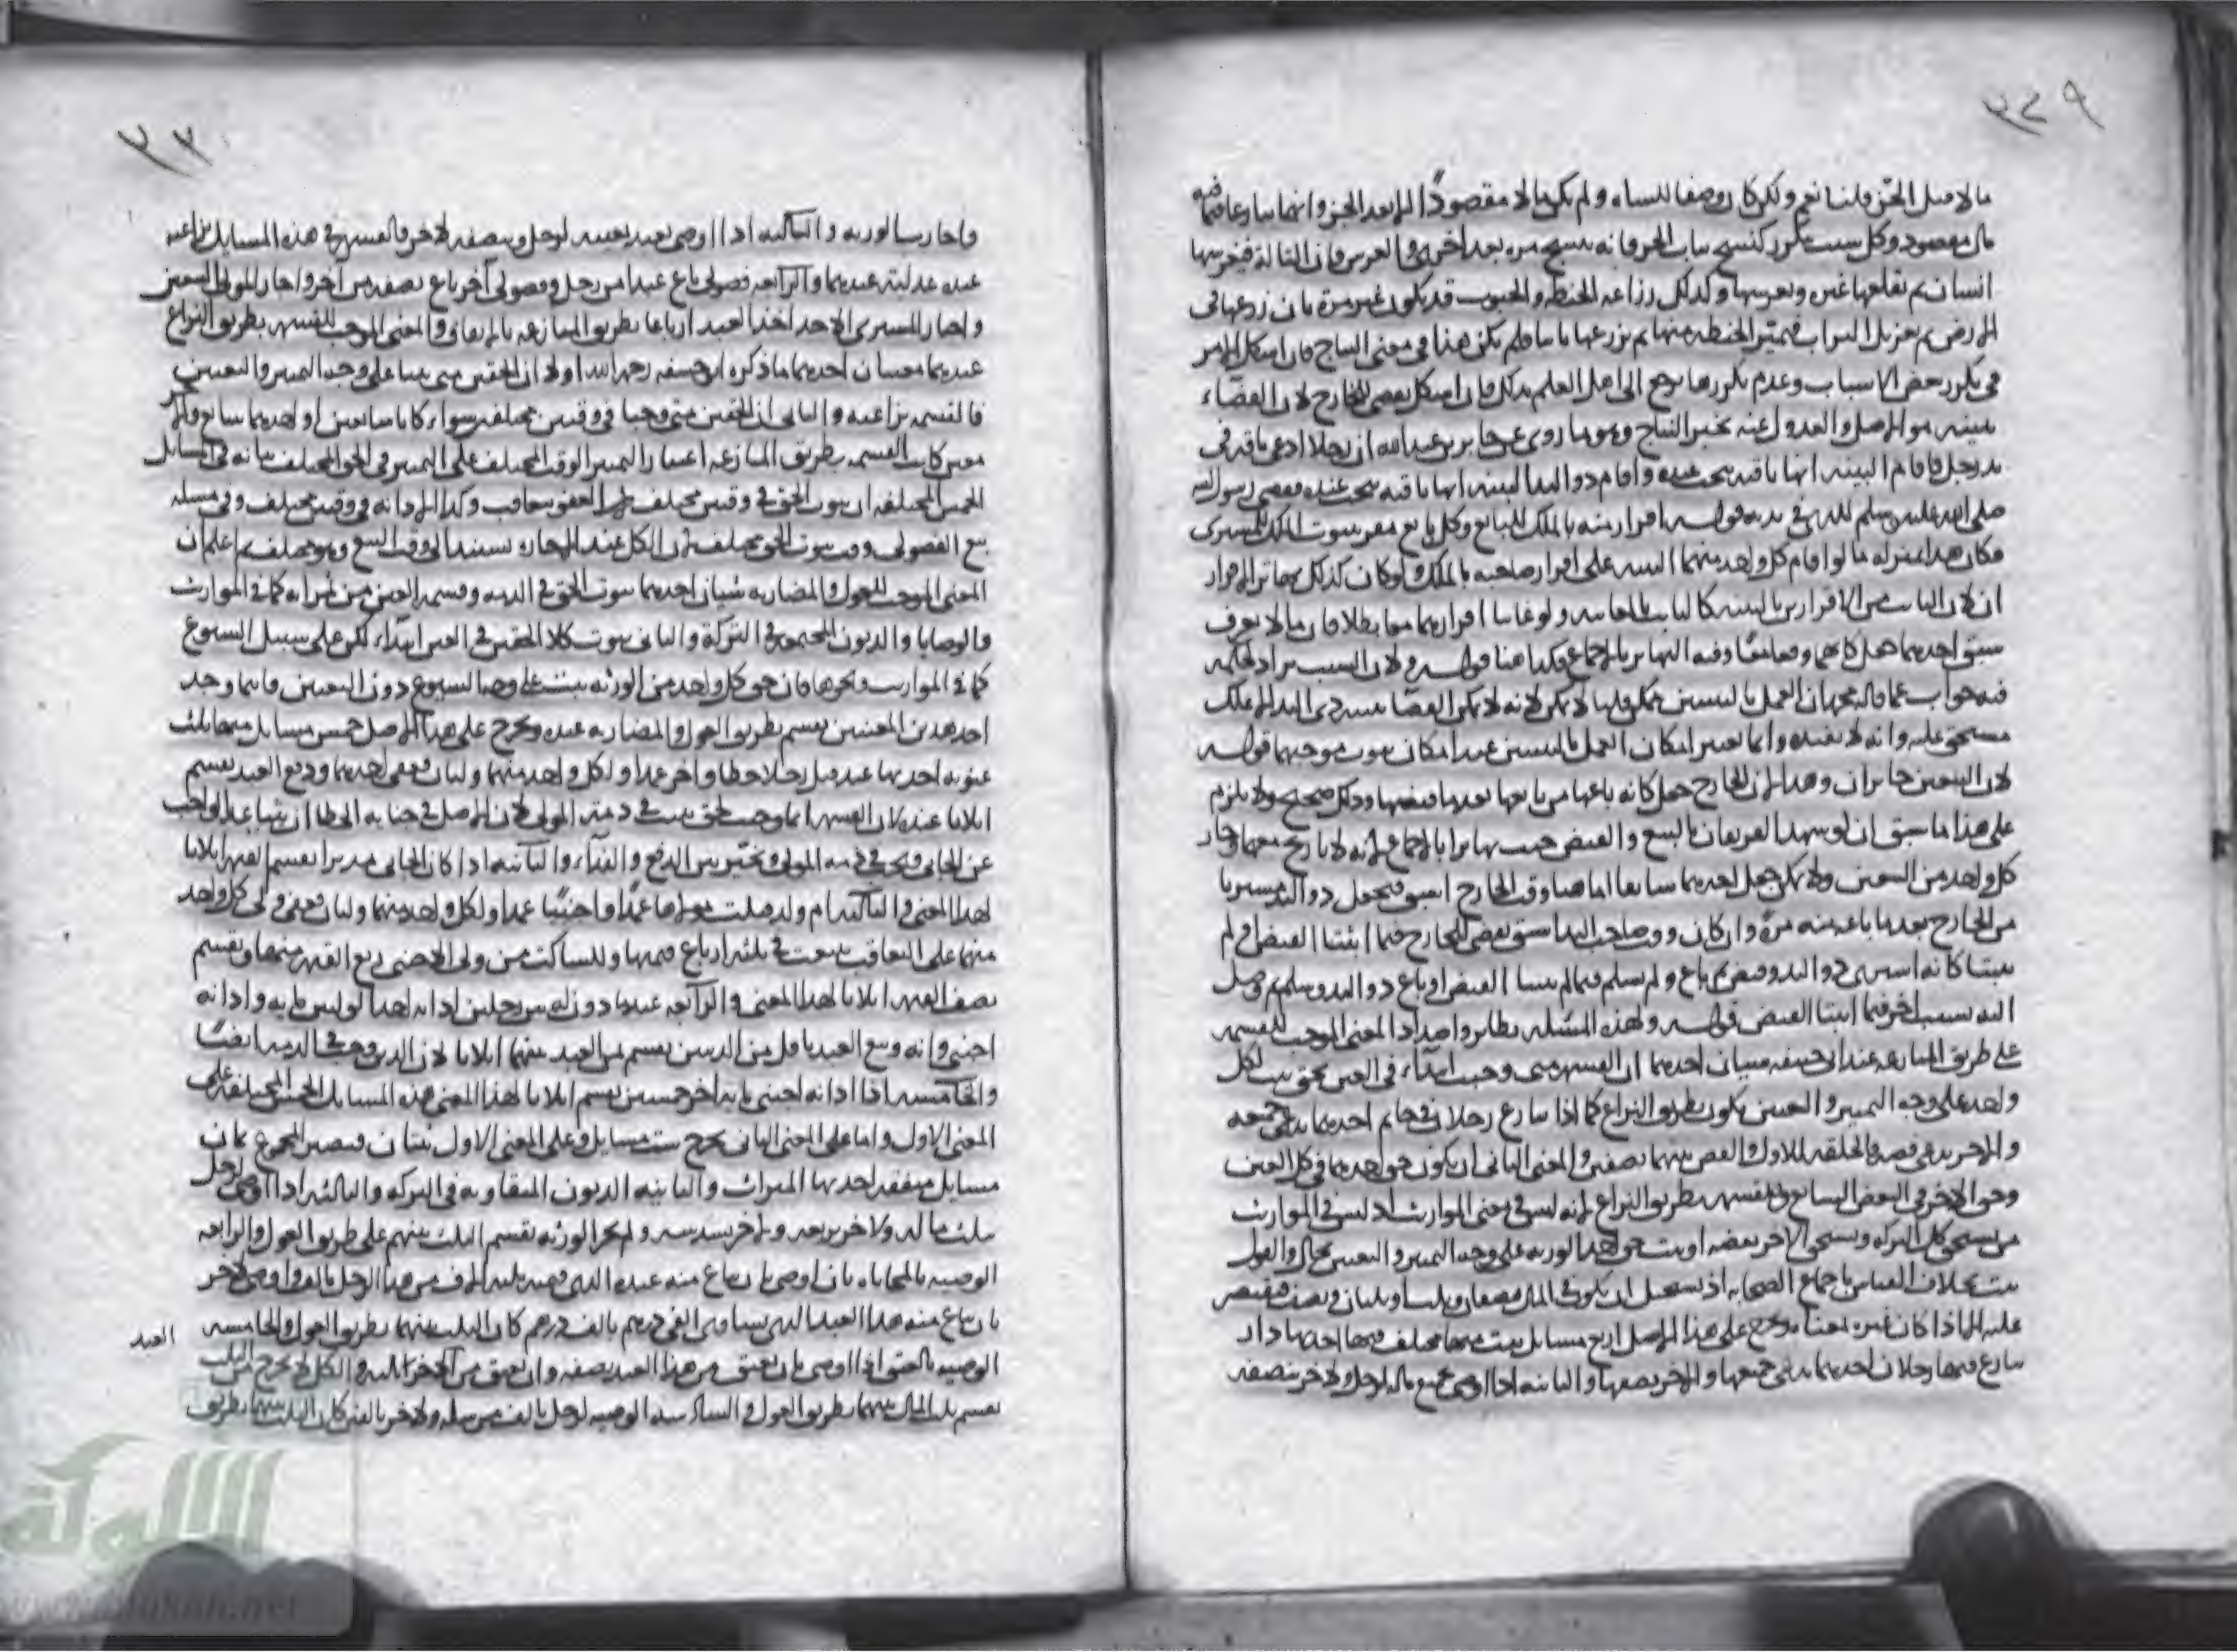 ٣٤٩
مالا قبل الجز قلنا نعم ولكن كان وصفا للشاه ولم يكن مالا مقصودًا الا بعد الجز وانهما تنازعا فيما فيه
مال مقصود وكل سبب يتكرر كنسج ثياب الخز فانه ينسج مره بعد اخرى والغرس فان التالة قد يغرسها
انسان ثم يقلعها غيره ويغرسها وكذلك زراعه الحنطه والحبوب قد يكون غير مرة بان زرعها في
الارض ثم يغربل التراب فتميز الحنطه منها ثم يزرعها ثانيا فلم يكن هذا في معنى النتاج فان اشكل الامر
في تكرر بعض الاسباب وعدم تكررها يرجع الى اهل العلم بذلك فان اشكل يقضى للخارج لان القضاء
ببينته هو الاصل والعدول عنه بخبر النتاج وهو ما روى عن جابر بن عبد الله ان رجلا ادعى ناقه في
يد رجل فاقام البينه انها ناقته نتجت عنده واقام ذو اليد البينه انها ناقته نتجت عنده فقضى رسول الله
صلى الله عليه وسلم للذي في يده قوله اقرار منه بالملك للبائع وكل بائع مقر بثبوت الملك للمشتري
فكان هذا بمنزله ما لو اقام كل واحد منهما البينه على اقرار صاحبه بالملك ولو كان كذلك تهاتر الاقرار
ان لان الثابت من الاقرارين بالبينه كالثابت بالمعاينه ولو عاينا اقراريهما معا بطلا فان ما لا يعرف
سبق احديهما جعل كانهما وقعا معًا وفيه التهاتر بالاجماع فكذا هنا قوله ولان السبب يراد لحكمه
فيه جواب عما قاله محمد ان العمل بالبينتين ممكن قلنا لا يمكن لانه لا يمكن القضاء لذي اليد الا بملك
مستحق عليه وانه لا يفيده وانما يعتبر امكان العمل بالبينتين عند امكان ثبوت موجبهما قوله
لان البيعين جائزان وهذا لان الخارج جعل كانه باعها من بائعها بعدما قبضها وذلك صحيح ولا يلزم
على هذا ما سبق ان لو شهد الفريقان بالبيع والقبض حيث تهاترا بالاجماع لانه لا تاريخ معهما وجاز
كل واحد من البيعين ولا يمكن جعل احديهما سابقا اما هنا وقت الخارج اسبق فيجعل ذو اليد مشتريا
من الخارج بعدما باعه منه مرة وان كان وقت صاحب اليد اسبق يقضى للخارج فيما اثبتنا القبض او لم
يثبتا كانه اشترى ذو اليد وقبض ثم باع ولم يسلم فيما لم يثبتا القبض او باع ذو اليد وسلم ثم وصل
اليه بسبب اخر فيما اثبتا القبض قوله ولهذه المسئله نظائر واضداد المعنى الموجب للقسمه
على طريق المنازعه عند ابى حنيفه شيئان احديهما ان القسمه متى وجبت ابتداء في العين بحق ثبت لكل
واحد على وجه التمييز والتعيين يكون بطريق النزاع كما اذا تنازع رجلان في خاتم احديهما يدعى جميعه
والاخر يدعى فصه فالحلقه للاول والفص بينهما نصفين والمعنى الثانى ان يكون حق احديهما في كل العين
وحق الاخر في البعض الشائع فالقسمه بطريق النزاع لانه ليس في معنى الموارث اذ ليس في الموارث
من يستحق كل التركه ويستحق الاخر بعضه او يثبت حق احد الورثه على وجه التمييز والتعيين بحال والعول
ثبت بخلاف القياس باجماع الصحابه اذ يستحيل ان يكون في المال نصفان وثلث او ثلثان ونصف فيقتصر
عليه الا اذا كان غيره بمعناه فيخرج على هذا الاصل اربع مسائل ثبت منها مختلف فيها احديها دار
تنازع فيها رجلان احديهما يدعى جميعها والاخر نصفها والثانيه اذا اوصى بجميع ماله لرجل ولاخر بنصفه
٣٣٠
واجازت الورثه والثالثه اذا اوصى بعبد بعينه لرجل وبنصفه لاخر فالقسمه في هذه المسايل نزاعيه
عنده عوليه عندهما والرابعه فضولى باع عبدا من رجل وفضولى آخر باع نصفه من آخر واجاز المولى البيعين
واختار المشترى الاخذ اخذا العبد ارباعا بطريق المنازعه بالاتفاق والمعنى الموجب للقسمه بطريق النزاع
عندهما معنيان احديهما ما ذكره ابو حنيفه رحمه الله اولا ان الحقين متى ثبتا على وجه التمييز والتعيين
فالقسمه نزاعيه والثانى ان الحقين متى وجبا في وقتين مختلفين سواء كانا شائعين او احديهما شائع والاخر
معين كانت القسمه بطريق المنازعه اعتبارا لتمييز الوقت المختلف على التمييز في الحق المختلف بيانه في المسايل
الخمس المختلفه ان ثبوت الحق في وقتين مختلفين لان العفو يتعاقب وكذا الادانه في وقتين مختلفين وفي مسله
بيع الفضولى وقت ثبوت الحق مختلف لان الكل عند الاجازه يستند الى وقت البيع وهو مختلف ثم اعلم ان
المعنى الموجب للعول والمضاربه شيئان احديهما ثبوت الحق في الذمه وقسمه العين من ثمراته كما في الموارث
والوصايا والديون المجتمعه في التركة والثانى ثبوت كلا الحقين في العين ابتداء لكن على سبيل الشيوع
كما في الموارث ونحوها فان حق كل واحد من الورثه يثبت على وجه الشيوع دون التعيين فاينما وجد
احد هذين المعنيين يقسم بطريق العول والمضاربه عنده ويخرج على هذا الاصل خمس مسايل منها ثلث
عنويه احديها عبد قتل رجلا خطا واخر عمدا ولكل واحد منهما وليان فعفى احديهما ودفع العبد يقسم
اثلاثا عنده لان القسمه انما وجبت لحق ثبت في ذمته المولى لان الاصل في جنايه الخطا ان يتباعد الواجب
عن الجانى ويجب في ذمه المولى ويخير بين الدفع والفداء والثانيه اذا كان الجانى مدبرا يقسم القيمه اثلاثا
لهذا المعنى والثالثه ام ولد قتلت مولاها عمدًا واجنبيًا عمدا ولكل واحد منهما وليان فعفى ولى كل واحد
منهما على التعاقب سعت في ثلثه ارباع قيمتها وللساكت من ولى الاجنبى ربع القيمه منها ويقسم
نصف القيمه اثلاثا لهذا المعنى والرابعه عبد ماذون له بين رجلين ادانه احد المولين مايه وادانه
اجنبى وانه وبيع العبد باقل من الدينين يقسم ثمن العبد بينهما اثلاثا لان الدين وجب في الذمه ايضًا
والخامسه اذا ادانه اجنبى مايه اخر خمسين يقسم اثلاثا لهذا المعنى هذه المسايل الخمس المختلفه على
المعنى الاول واما على المعنى الثانى يخرج ست مسايل وعلى المعنى الاول ثنتان فيصير المجموع ثمان
مسايل متفقه احديها الميراث والثانيه الديون المتفاوته في التركه والثالثه اذا اوصى لرجل
بثلث ماله ولاخر بربعه ولاخر بسدسه ولم يجز الورثه يقسم الثلث بينهم على طريق العول والرابعه
الوصيه بالمحاباه بان اوصى بان يباع منه عبده الذى قيمته ثلثه الاف من هذا الرجل بالف واوصى لاخر
بان يباع منه هذا العبد الذى يساوى الفى درهم بالف درهم كان الثلث بينهما بطريق العول والخامسه
الوصيه بالعتق اذا اوصى بان يعتق من هذا العبد نصفه وان يعتق من الاخر ثلثه والكل لا يخرج من الثلث
يقسم ثلث المال بينهما بطريق العول والسادسه الوصيه لرجل بالف مرسله ولاخر بالفين كان الثلث بينهما بطريق
العبد
الألوكة
www.alukah.net